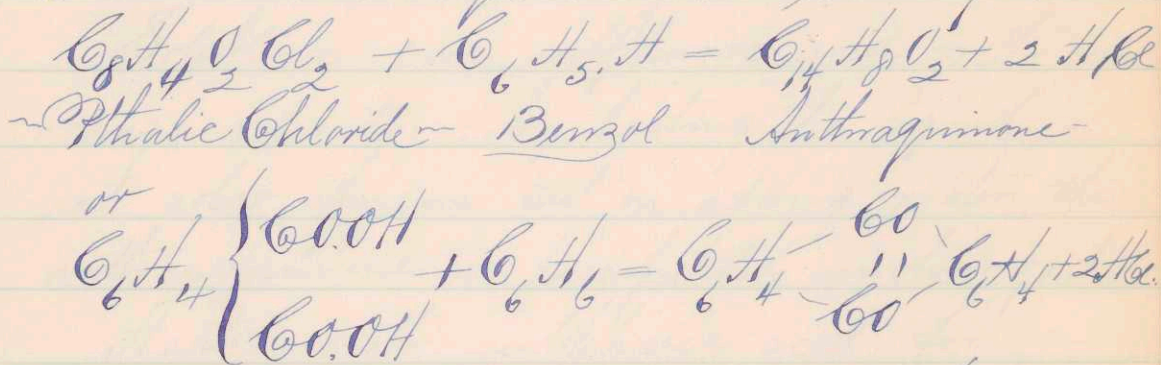 C₈H₄O₂Cl₂ + C₆H₅.H = C₁₄H₈O₂ + 2 HCl
~Pthalic Chloride~ Benzol Anthraquinone-
or
C₆H₄ { CO.OH CO.OH + C₆H₆ = C₆H₄ CO CO C₆H₄ + 2HCl.